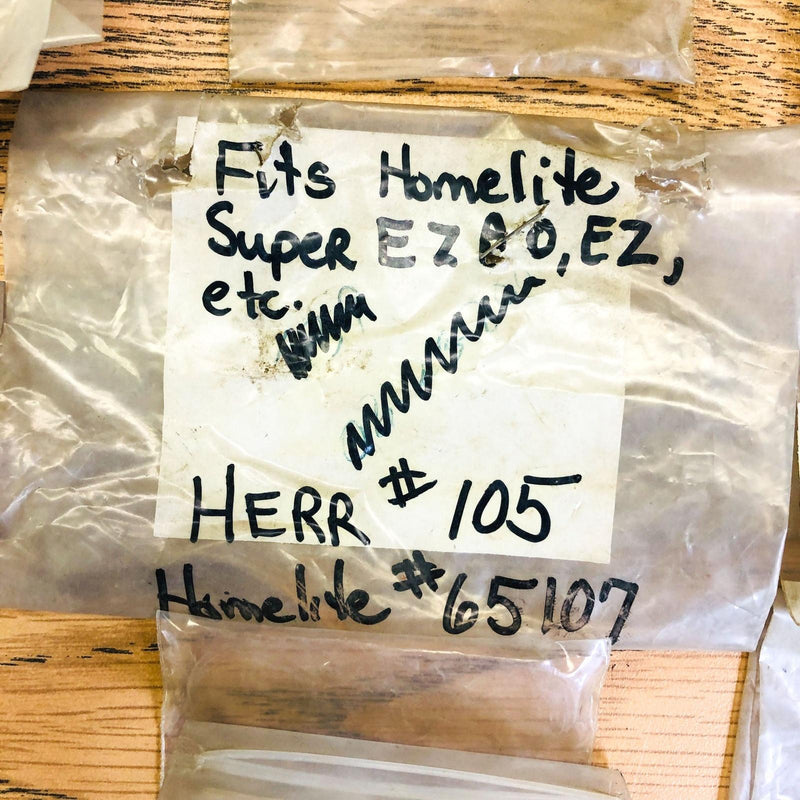 Fits Homelite
Super EZ AO, EZ,
etc.
HERR # 105
Homelite #65107